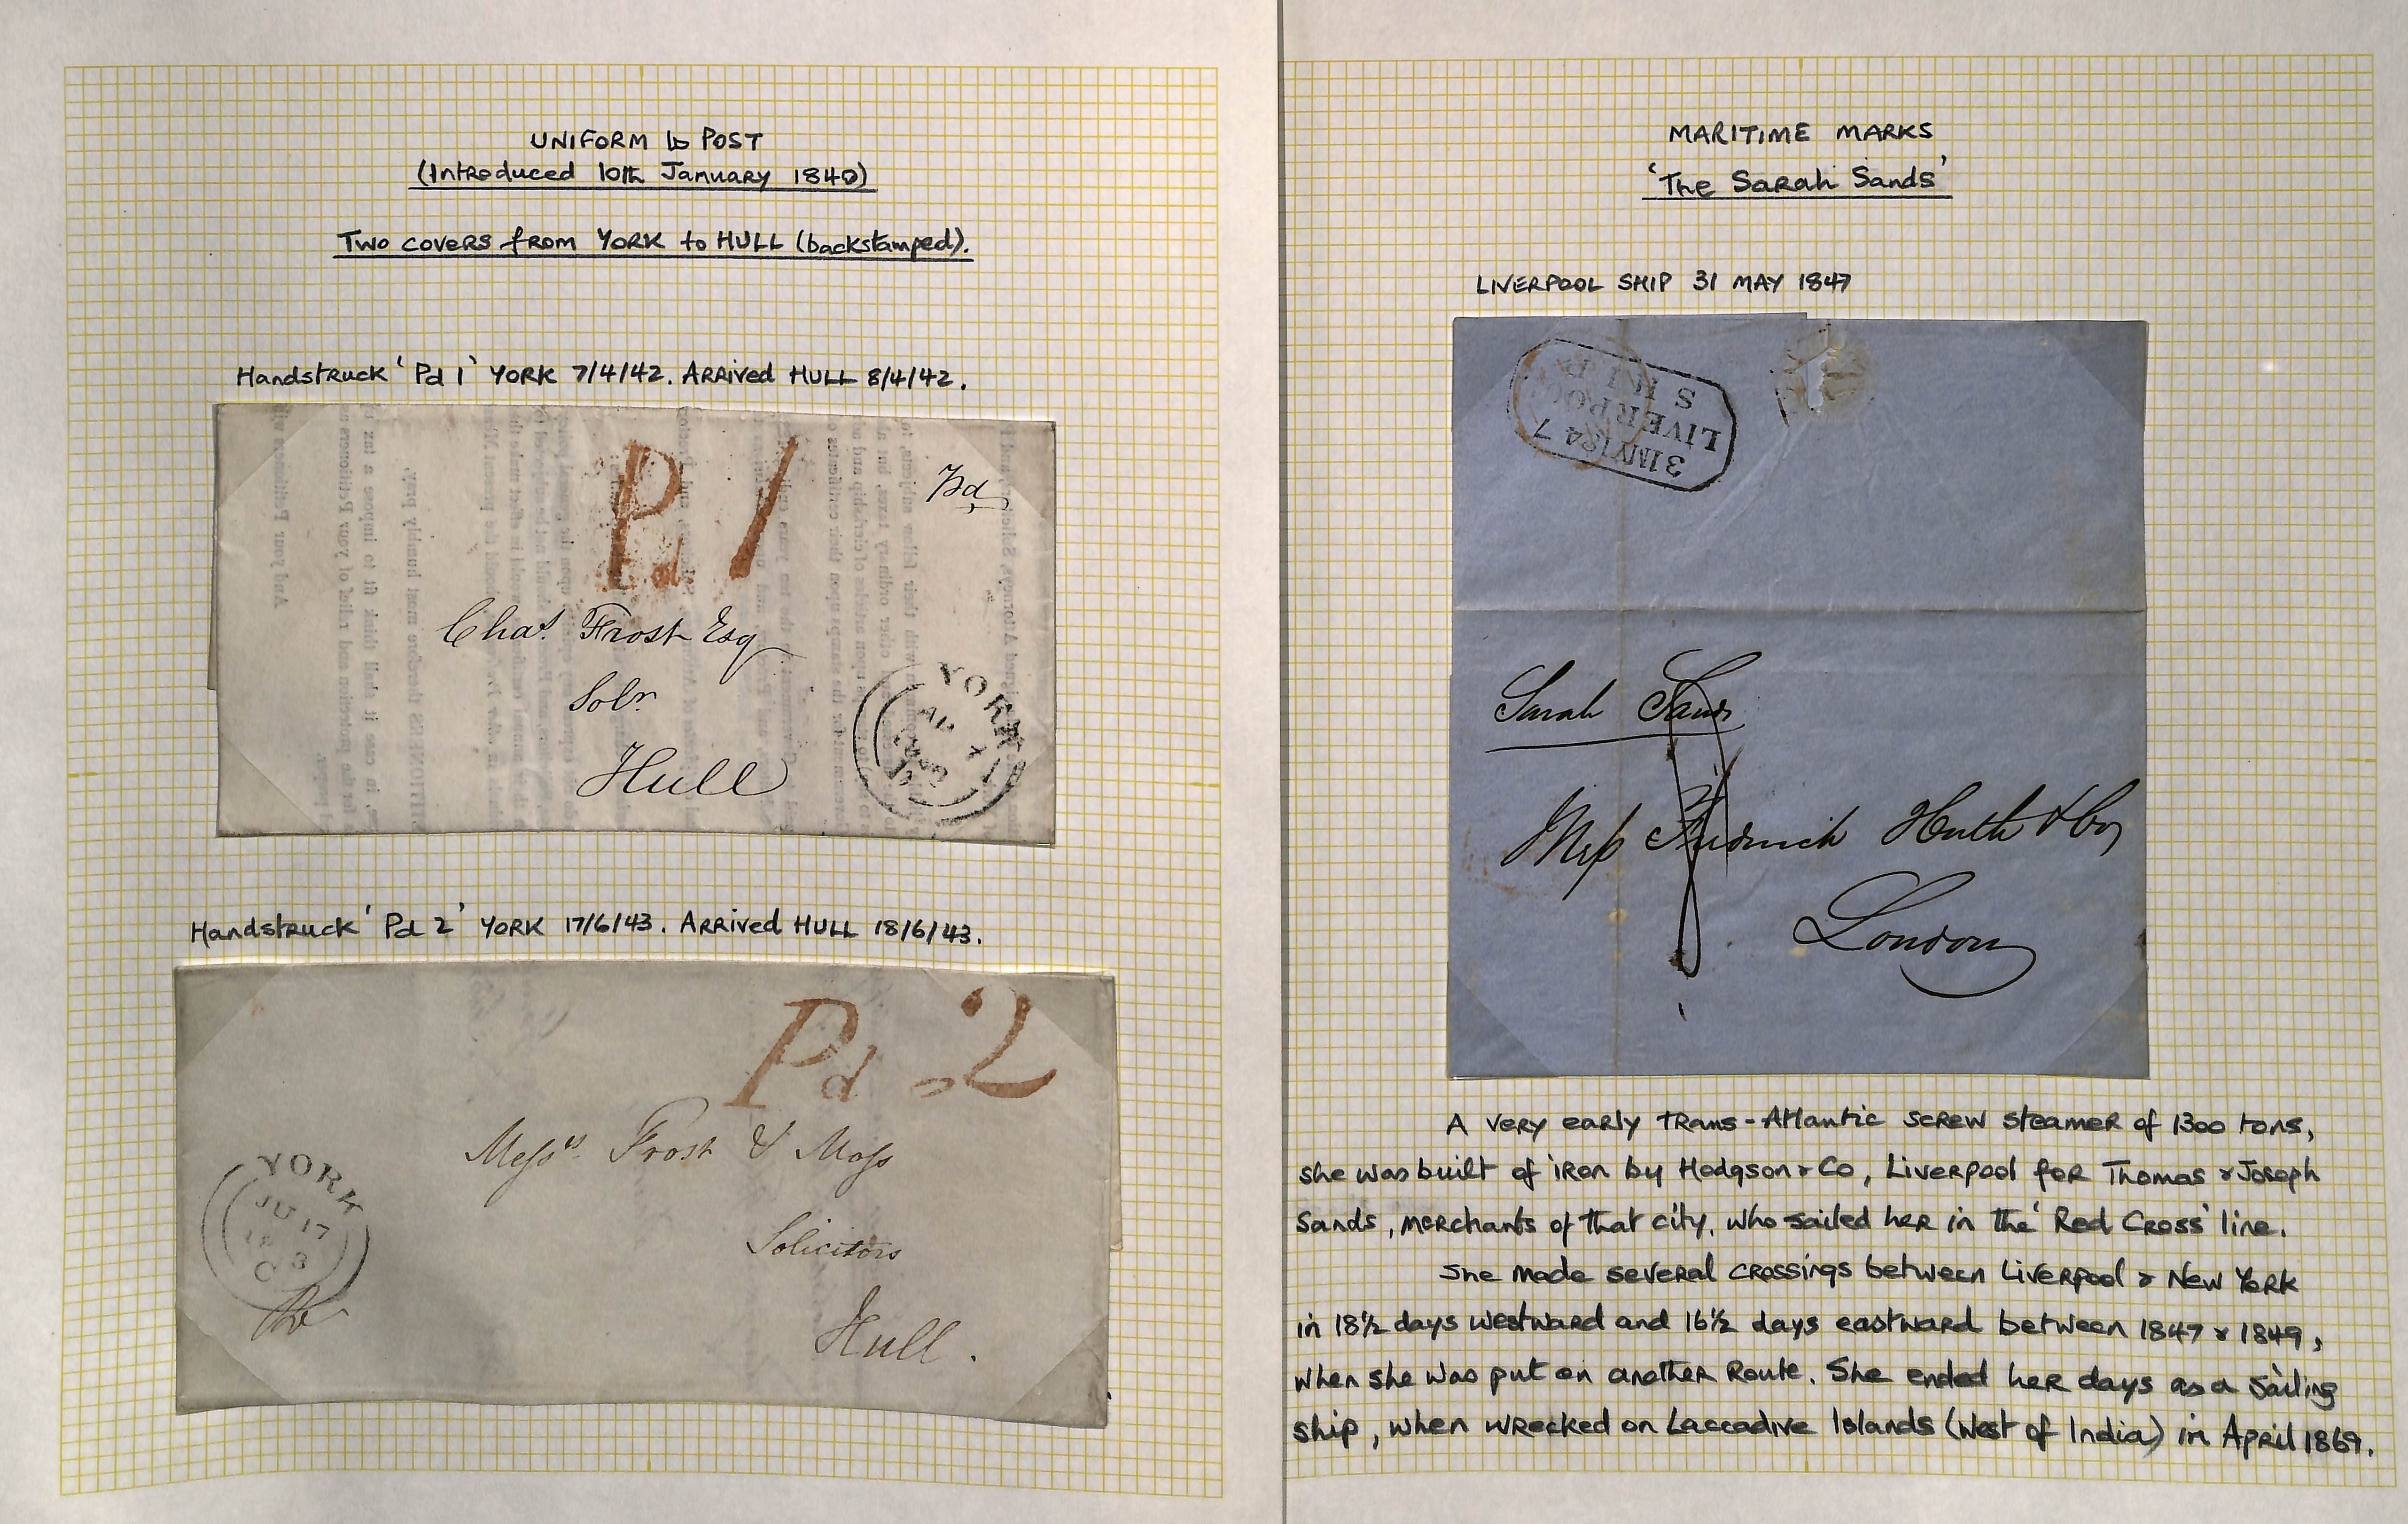 UNIFORM 1D POST
(Introduced 10th January 1840)
Two covers from York to Hull (backstamped).
Handstruck 'Pd 1' York 7/4/42. Arrived Hull 8/4/42.
Pd 1
Pd
Chas. Frost Esq
Solr
Hull
YORK
AP 7
1842
Handstruck 'Pd 2' York 17/6/43. Arrived Hull 18/6/43.
Pd 2
Messrs. Frost & Moss
Solicitors
Hull.
YORK
JU 17
MARITIME MARKS
'The Sarah Sands'
LIVERPOOL SHIP 31 MAY 1847
31MY1847
LIVERPOOL
SHIP
Sarah Sands
Messrs Fredrich Huth & Co,
London
A very early trans-Atlantic screw steamer of 1300 tons,
she was built of iron by Hodgson & Co, Liverpool for Thomas & Joseph
Sands, merchants of that city, who sailed her in the 'Red Cross' line.
She made several crossings between Liverpool & New York
in 18½ days westward and 16½ days eastward between 1847 & 1849,
when she was put on another route. She ended her days as a sailing
ship, when wrecked on Laccadive Islands (West of India) in April 1869.